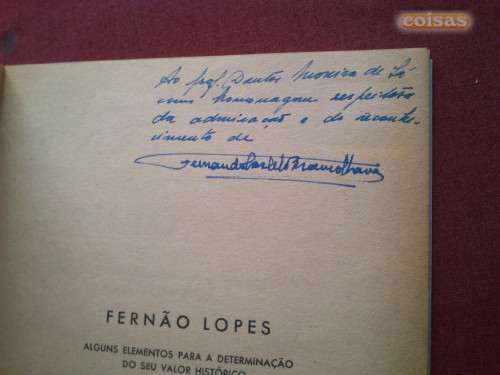 coisas
Ao prof. Dentor Moreira de Sá
como homenagem respeitosa
da admiração e do reconhe-
cimento de
Fernando
FERNÃO LOPES
ALGUNS ELEMENTOS PARA A DETERMINAÇÃO
DO SEU VALOR HISTÓRICO